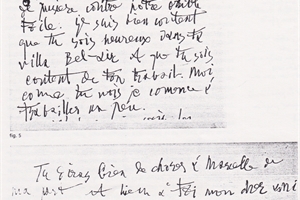 je suis bien content
que tu sois heureux dans ta
villa Bel-Air et que tu sois
content de ton travail. Moi
come tu vois je comence à
travailler un peu.
fig. 5
Tu diras bien de choses à Marcelle de
ma part et bien à toi mon cher ami